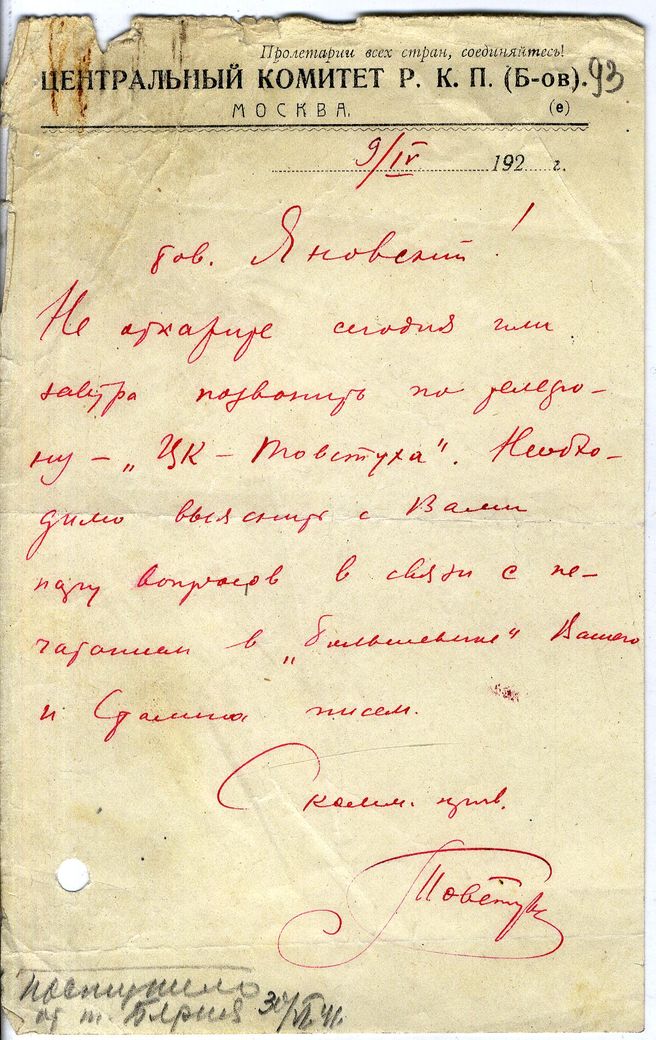 Пролетарии всех стран, соединяйтесь!
ЦЕНТРАЛЬНЫЙ КОМИТЕТ Р. К. П. (Б-ов). 93
МОСКВА. (е)
9/IV 192 г.
тов. Яновский!
Не откажите сегодня или
завтра позвонить по телефо-
ну – „ЦК – Товстуха“. Необхо-
димо выяснить с Вами
пару вопросов в связи с пе-
чатанием в „Большевике“ Вашего
и Сталина писем.
С комм. прив.
Товстуха
Поступило
от т. Берия 30/VI 41.